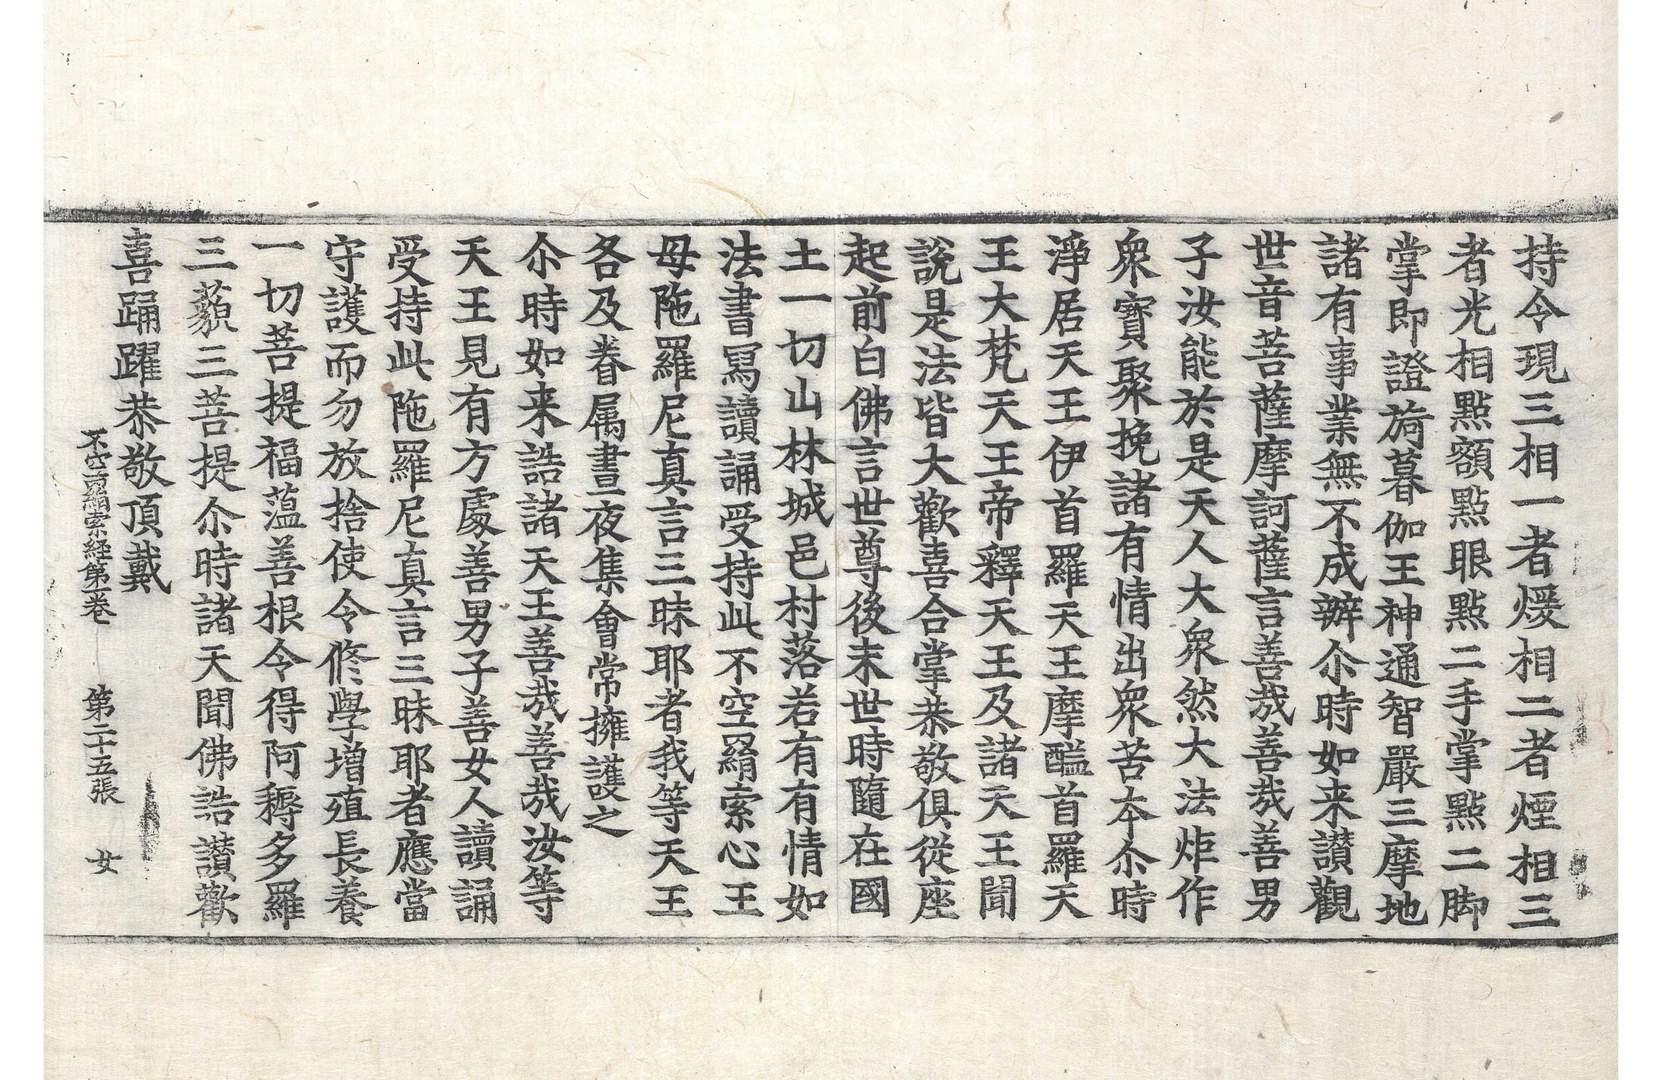 持令現三相一者煖相二者煙相三
者光相點額點眼點二手掌點二脚
掌即證旖暮伽王神通智嚴三摩地
諸有事業無不成辦尒時如来讃觀
世音菩薩摩訶薩言善㦲善㦲善男
子汝能於是天人大衆然大法炬作
衆寶聚挽諸有情出衆苦本尒時
淨居天王伊首羅天王摩醯首羅天
王大梵天王帝釋天王及諸天王聞
說是法皆大歡喜合掌恭敬俱從座
起前白佛言世尊後末世時隨在國
土一切山林城邑村落若有有情如
法書寫讀誦受持此不空羂索心王
母陁羅尼真言三昧耶者我等天王
各及眷属晝夜集會常擁護之
尒時如来誥諸天王善㦲善㦲汝等
天王見有方處善男子善女人讀誦
受持此陁羅尼真言三昧耶者應當
守護而勿放捨使令修學增殖長養
一切菩提福蕰善根令得阿耨多羅
三藐三菩提尒時諸天聞佛誥讃歡
喜踊躍恭敬頂戴
不空羂索経第一卷 第二十五張 女